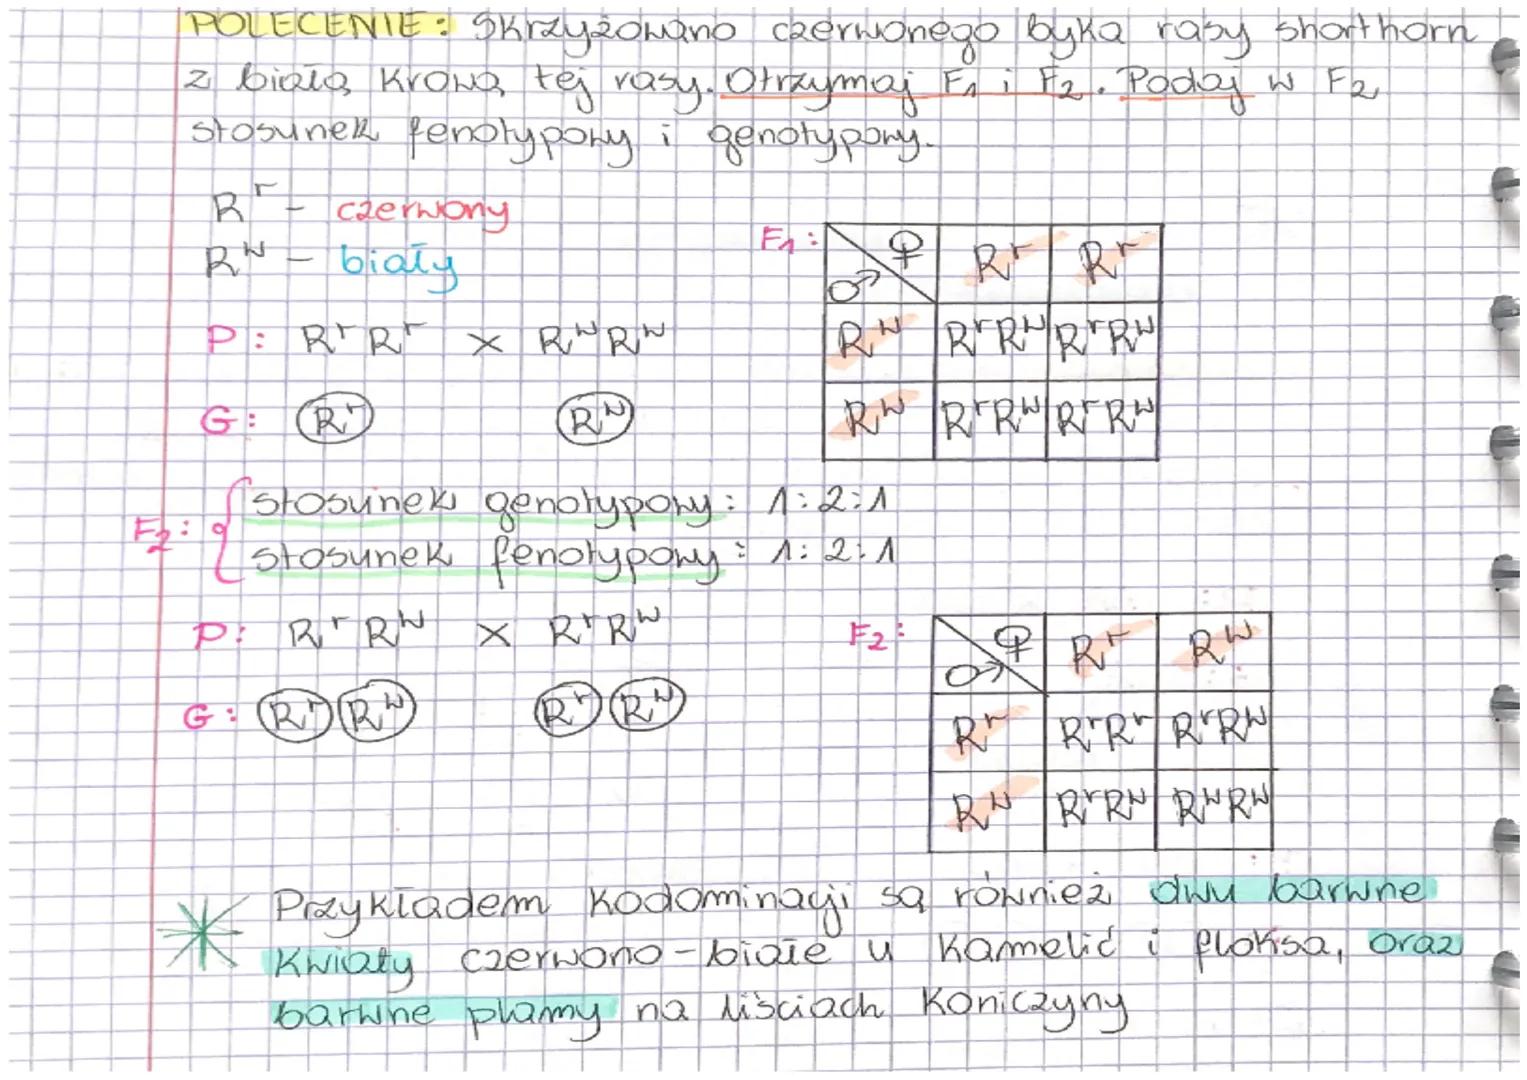 POLECENIE: Skrzyżowano czerwonego byka rasy shorthorn
z białą krową tej rasy. Otrzymaj F₁ i F₂. Podaj w F₂
stosunek fenotypowy i genotypowy.
Rʳ - czerwony
Rᵂ - biały
F₁: ♀ ♂ Rʳ Rʳ
P: RʳRʳ x RᵂRᵂ
Rᵂ RʳRᵂ RʳRᵂ
G: Rʳ Rᵂ
Rᵂ RʳRᵂ RʳRᵂ
F₂: stosunek genotypowy: 1:2:1
stosunek fenotypowy: 1:2:1
P: RʳRᵂ x RʳRᵂ
F₂: ♀ ♂ Rʳ Rᵂ
G: Rʳ Rᵂ Rʳ Rᵂ
Rʳ RʳRʳ RʳRᵂ
Rᵂ RʳRᵂ RᵂRᵂ
Przykładem kodominacji są również dwu barwne
kwiaty czerwono-białe u kamelić i floksa, oraz
barwne plamy na liściach koniczyny